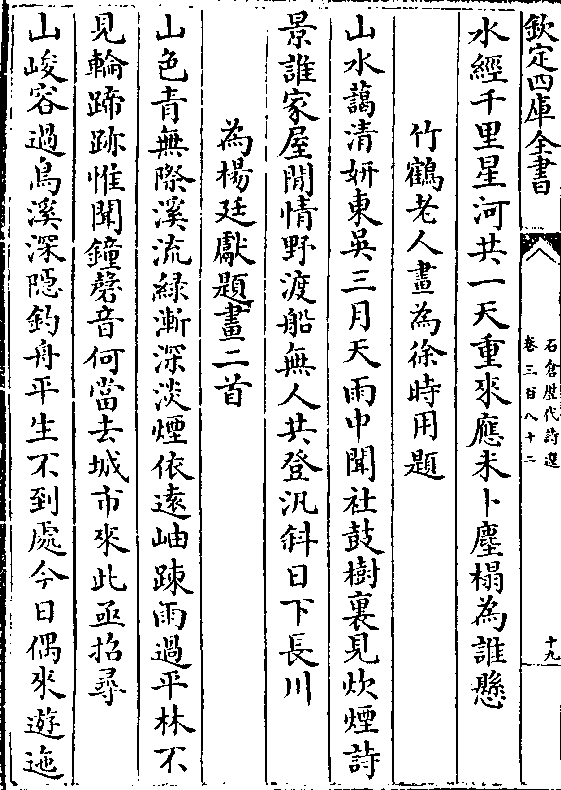 欽定四庫全書
石倉歷代詩選
卷三百八十二
十九
水經千里星河共一天重來應未卜塵榻為誰懸
竹鶴老人畫為徐時用題
山水藹清妍東吳三月天雨中聞社鼓樹裏見炊煙詩
景誰家屋閒情野渡船無人共登汎斜日下長川
為楊廷獻題畫二首
山色青無際溪流綠漸深淡煙依遠岫踈雨過平林不
見輪蹄跡惟聞鐘磬音何當去城市來此亟招尋
山峻容過鳥溪深隱釣舟平生不到處今日偶來遊迤